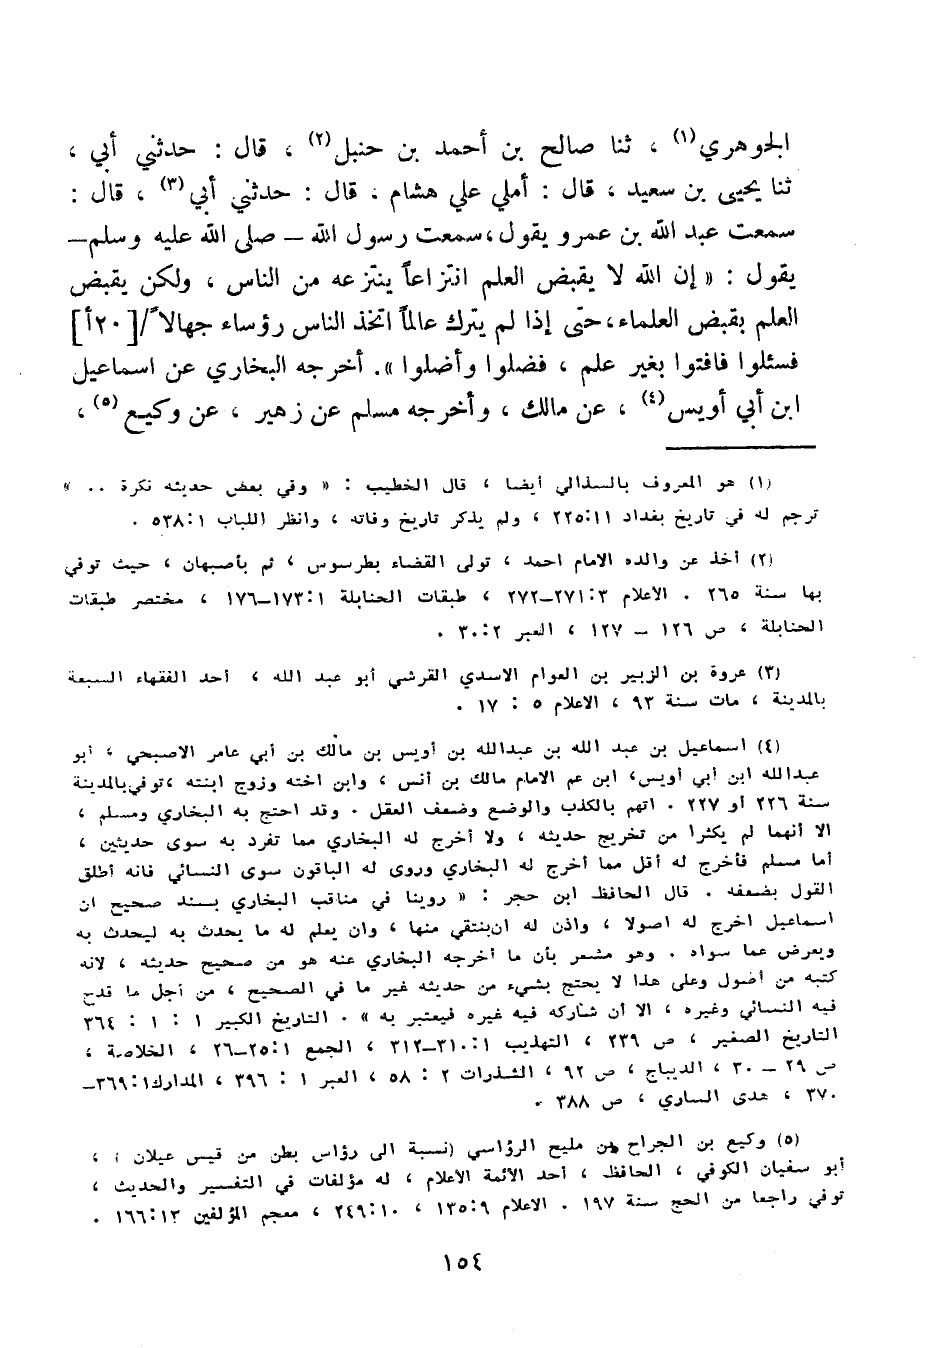 الجوهري(١) ، ثنا صالح بن أحمد بن حنبل(٢) ، قال : حدثني أبي ،
ثنا يحيى بن سعيد ، قال : أملي علي هشام . قال : حدثني أبي(٣) ، قال :
سمعت عبد الله بن عمرو يقول ، سمعت رسول الله – صلى الله عليه وسلم –
يقول : « إن الله لا يقبض العلم انتزاعاً ينتزعه من الناس ، ولكن يقبض
العلم بقبض العلماء ، حتى إذا لم يترك عالماً اتخذ الناس رؤساء جهالاً/[٢٠أ]
فسئلوا فافتوا بغير علم ، فضلوا وأضلوا ». أخرجه البخاري عن اسماعيل
ابن أبي أويس(٤) ، عن مالك ، وأخرجه مسلم عن زهير ، عن وكيع(٥) ،
(١) هو المعروف بالسذالي أيضا ، قال الخطيب : « وفي بعض حديثه نكرة .. »
ترجم له في تاريخ بغداد ٢٢٥:١١ ، ولم يذكر تاريخ وفاته ، وانظر اللباب ٥٣٨:١ .
(٢) أخذ عن والده الامام احمد ، تولى القضاء بطرسوس ، ثم بأصبهان ، حيث توفي
بها سنة ٢٦٥ . الاعلام ٢٧١:٣–٢٧٢ ، طبقات الحنابلة ١٧٣:١–١٧٦ ، مختصر طبقات
الحنابلة ، ص ١٢٦ – ١٢٧ ، العبر ٣٠:٢ .
(٣) عروة بن الزبير بن العوام الاسدي القرشي أبو عبد الله ، أحد الفقهاء السبعة
بالمدينة ، مات سنة ٩٣ ، الاعلام ٥ : ١٧ .
(٤) اسماعيل بن عبد الله بن عبدالله بن أويس بن مالك بن أبي عامر الاصبحي ، أبو
عبدالله ابن أبي أويس، ابن عم الامام مالك بن أنس ، وابن اخته وزوج ابنته ،توفي بالمدينة
سنة ٢٢٦ أو ٢٢٧ . اتهم بالكذب والوضع وضعف العقل . وقد احتج به البخاري ومسلم ،
الا أنهما لم يكثرا من تخريج حديثه ، ولا أخرج له البخاري مما تفرد به سوى حديثين ،
أما مسلم فأخرج له أقل مما أخرج له البخاري وروى له الباقون سوى النسائي فانه أطلق
القول بضعفه . قال الحافظ ابن حجر : « روينا في مناقب البخاري بسند صحيح ان
اسماعيل اخرج له اصولا ، واذن له ان ينتقي منها ، وان يعلم له ما يحدث به ليحدث به
ويعرض عما سواه . وهو مشعر بأن ما أخرجه البخاري عنه هو من صحيح حديثه ، لانه
كتبه من أضول وعلى هذا لا يحتج بشيء من حديثه غير ما في الصحيح ، من أجل ما قدح
فيه النسائي وغيره ، الا أن شاركه فيه غيره فيعتبر به » . التاريخ الكبير ١ : ١ : ٣٦٤
التاريخ الصغير ، ص ٢٣٩ ، التهذيب ٣١٠:١–٣١٢ ، الجمع ٢٥:١–٢٦ ، الخلاصة ،
ص ٢٩ – ٣٠ ، الديباج ، ص ٩٢ ، الشذرات ٢ : ٥٨ ، العبر ١ : ٣٩٦ ، المدارك ٣٦٩:١–
٣٧٠ ، هدى الساري ، ص ٣٨٨ .
(٥) وكيع بن الجراح بن مليح الرؤاسي (نسبة الى رؤاس بطن من قيس عيلان ) ،
أبو سفيان الكوفي ، الحافظ ، أحد الأئمة الأعلام ، له مؤلفات في التفسير والحديث ،
توفي راجعا من الحج سنة ١٩٧ . الاعلام ١٣٥:٩ ، ٢٤٩:١٠ ، معجم المؤلفين ١٦٦:١٣ .
١٥٤